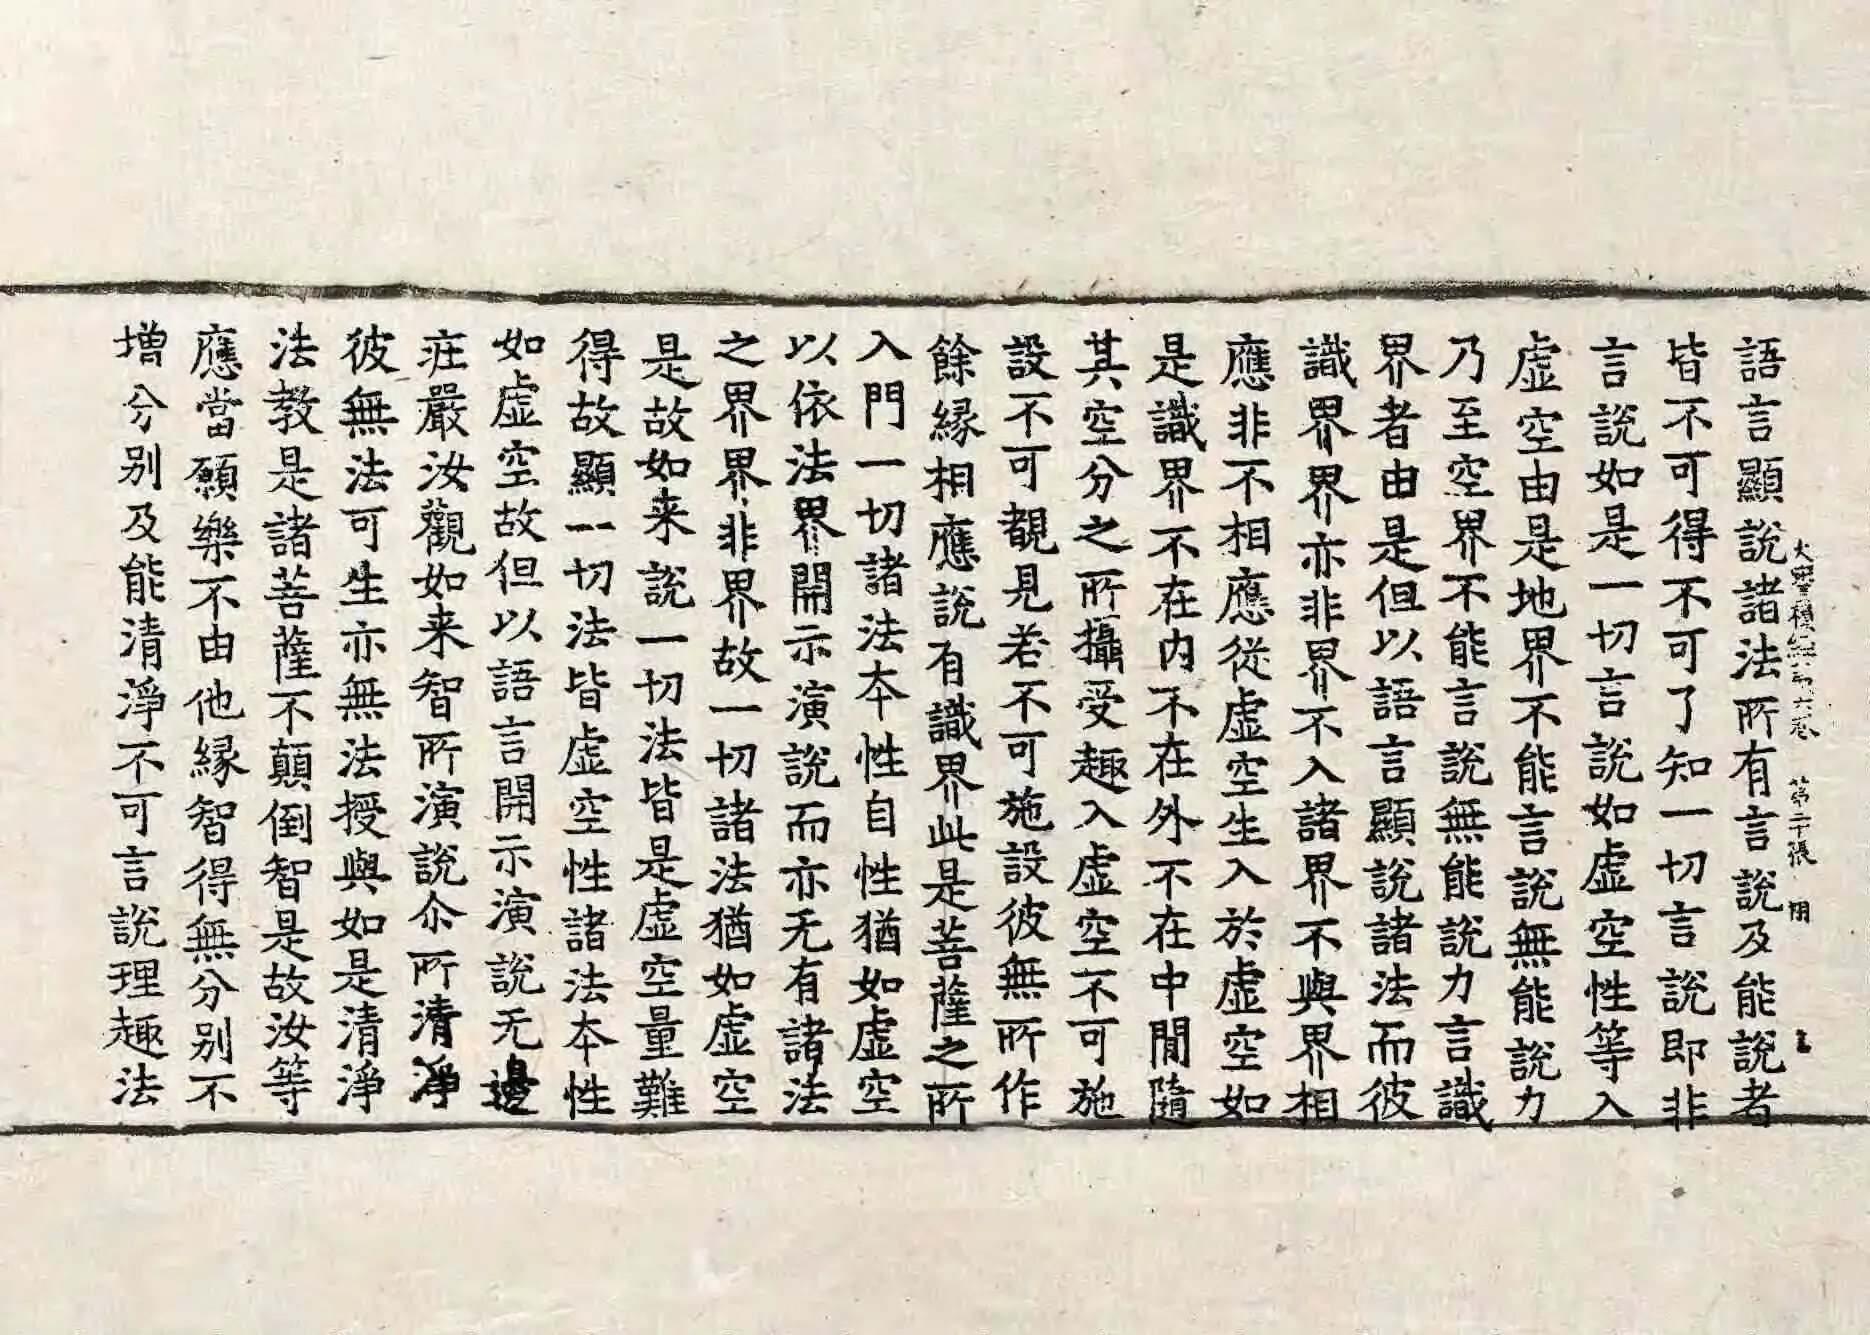 語言顯說諸法所有言說及能說者
大寶積經第六卷 第二十張
皆不可得不可了知一切言說即非
言說如是一切言說如虛空性等入
虛空由是地界不能言說無能說力
乃至空界不能言說無能說力言識
界者由是但以語言顯說諸法而彼
識界界亦非界不入諸界不與界相
應非不相應從虛空生入於虛空如
是識界不在內不在外不在中間隨
其空分之所攝受趣入虛空不可施
設不可覩見若不可施設彼無所作
餘緣相應說有識界此是菩薩之所
入門一切諸法本性自性猶如虛空
以依法界開示演說而亦无有諸法
之界界非界故一切諸法猶如虛空
是故如来說一切法皆是虛空量難
得故顯一切法皆虛空性諸法本性
如虛空故但以語言開示演說无邊
莊嚴汝觀如来智所演說尒所清淨
彼無法可生亦無法授與如是清淨
法教是諸菩薩不顛倒智是故汝等
應當願樂不由他緣智得無分別不
增分別及能清淨不可言說理趣法